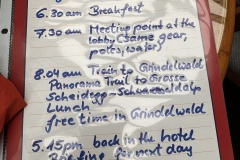 6.30am Breakfast
7.30am Meeting point at the
lobby (same gear,
poles, water)
8.04am Train to Grindelwald
Panorama Trail to Grosse
Scheidegg - Schwarzwaldalp
Lunch
free time in Grindelwald
5.15pm back in the hotel
Briefing for next day